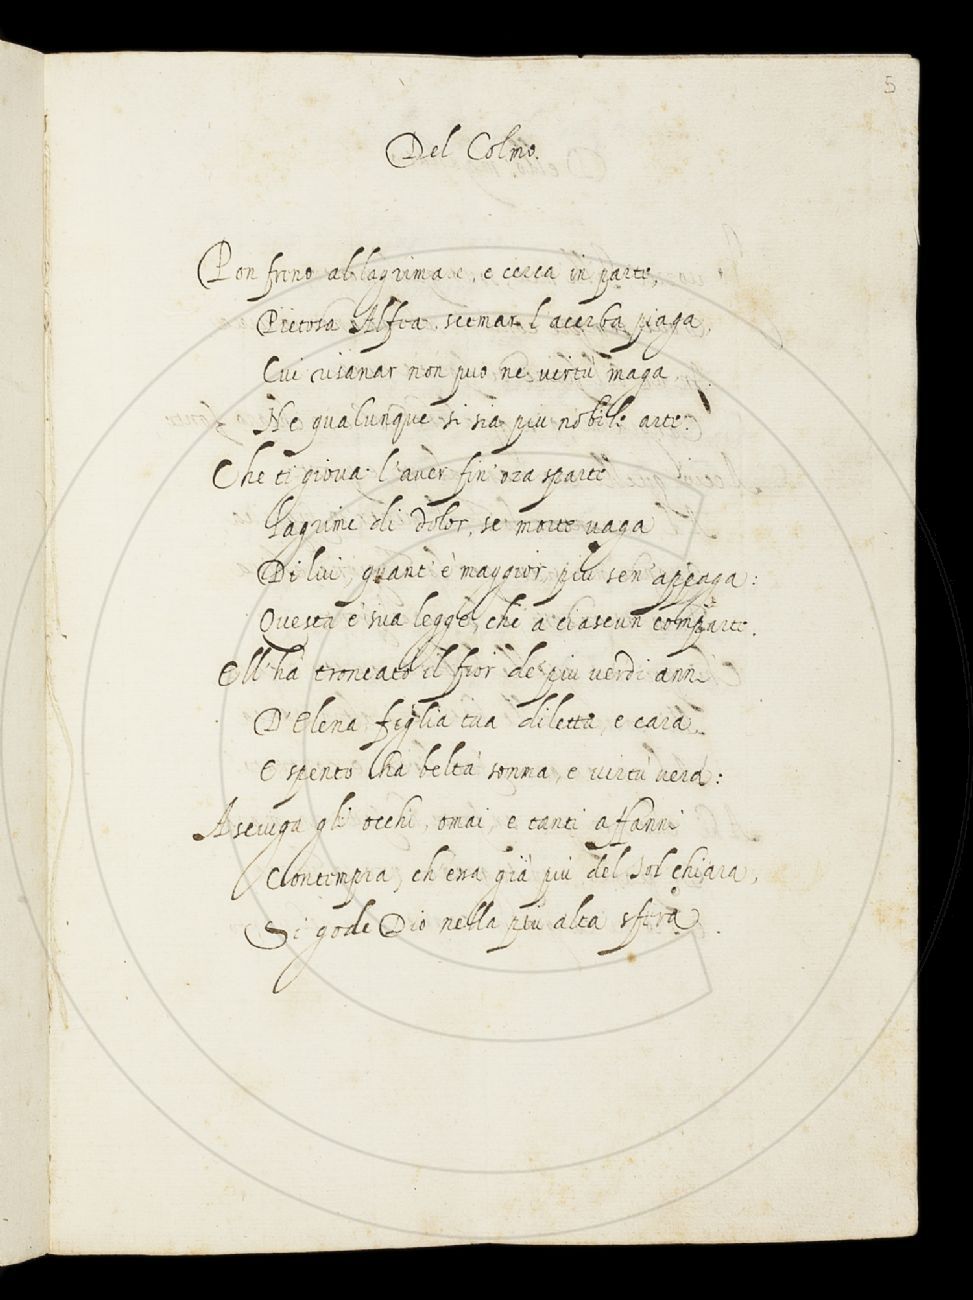 5
Del Colmo.
Pon freno al lagrimare, e cerca in parte,
Pietosa Alfea, scemar l'acerba piaga,
Cui risanar non può ne vertù maga
Ne qualunque si sia più nobile arte.
Che ti gioua l'auer fin'ora sparte
Lagrime di dolor, se morte uaga
Di lui, quant'è maggior, più sen'appaga:
Questa è sua legge, che a ciascun comparte.
Ell'hà troncato il fior de' più uerdi anni
D'Elena figlia tua diletta, e cara
E spento hà beltà somma, e uirtù uera:
Asciuga gli occhi omai, e tanti affanni
Contempra, ch'ena già più del sol chiara,
Si gode Dio nella più alta sfera.